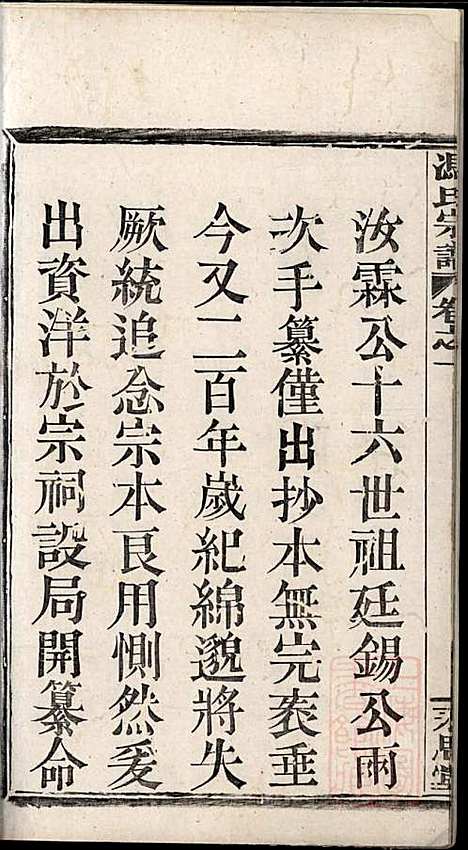 馮氏宗譜 卷之一
汝霖公十六世祖廷錫公兩
次手纂僅出抄本無完袠垂
今又二百年歲紀綿邈將失
厥統追念宗本良用惻然爰
出資洋於宗祠設局開纂命